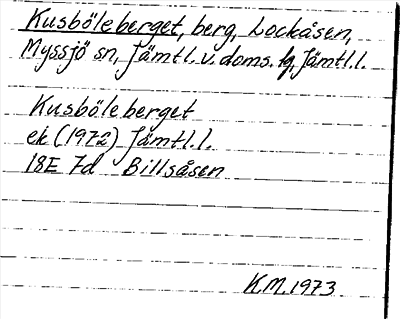 Kusböleberget, berg, Lockåsen,
Myssjö sn, Jämtl. v. doms. lg, Jämtl.l.
Kusböleberget
ek (1972) Jämtl.l.
18E 7d Billsåsen
K.M. 1973